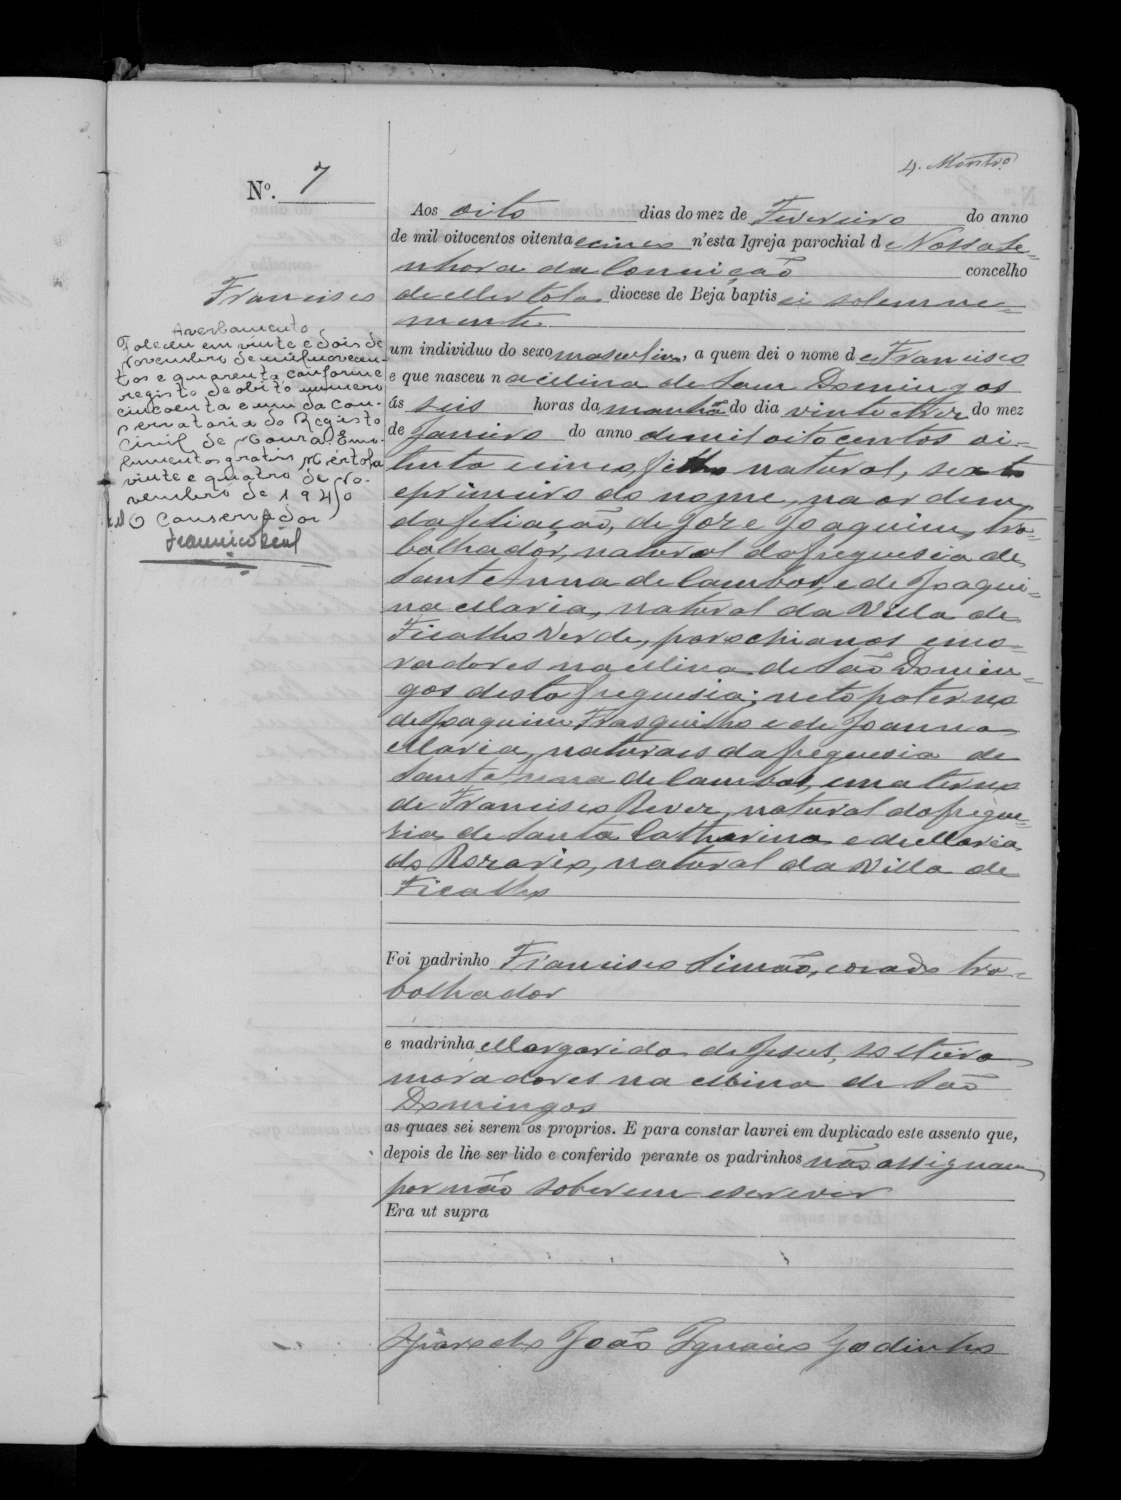 4. Montr.º
Nº. 7
Francisco
Averbamento
Faleceu em vinte e dois de
Novembro de mil novecen-
tos e quarenta conforme
registo de obito numero
cincoenta e um da Con-
servatoria do Registo
Civil de Moura. Emo-
lumentos gratis. Mértola
vinte e quatro de No-
vembro de 1940
O Conservador
Aos oito dias do mez de Fevereiro do anno
de mil oitocentos oitenta e cinco n'esta Igreja parochial de Nossa Se-
nhora da Conceição concelho
de Mertola diocese de Beja baptisei solemne-
mente
um individuo do sexo masculino, a quem dei o nome de Francisco
e que nasceu na Mina de Sam Domingos
ás seis horas da manhã do dia vinte e tres do mez
de Janeiro do anno de mil oitocentos oi-
tenta e cinco, filho natural, sexto
e primeiro do nome, na ordem
da filiação, de José Joaquim, tra-
balhador, natural da freguesia de
Sant'Anna de Cambas, e de Joaqui-
na Maria, natural da Villa de
Ficalho Verde, parochianos e mo-
radores na Mina de São Domin-
gos desta freguesia; neto paterno
de Joaquim Frasquilho e de Joanna
Maria, naturaes da freguesia de
Sant'Anna de Cambas, e materno
de Francisco Never, natural da fregue-
sia de Santa Catharina e de Maria
do Rosario, natural da Villa de
Ficalho
Foi padrinho Francisco Simão, casado tra-
balhador
e madrinha Margarida de Jesus, solteira
moradores na Mina de São
Domingos
as quaes sei serem os proprios. E para constar lavrei em duplicado este assento que,
depois de lhe ser lido e conferido perante os padrinhos não assignam
por não saberem escrever
Era ut supra
O Parocho João Ignacio Godinho